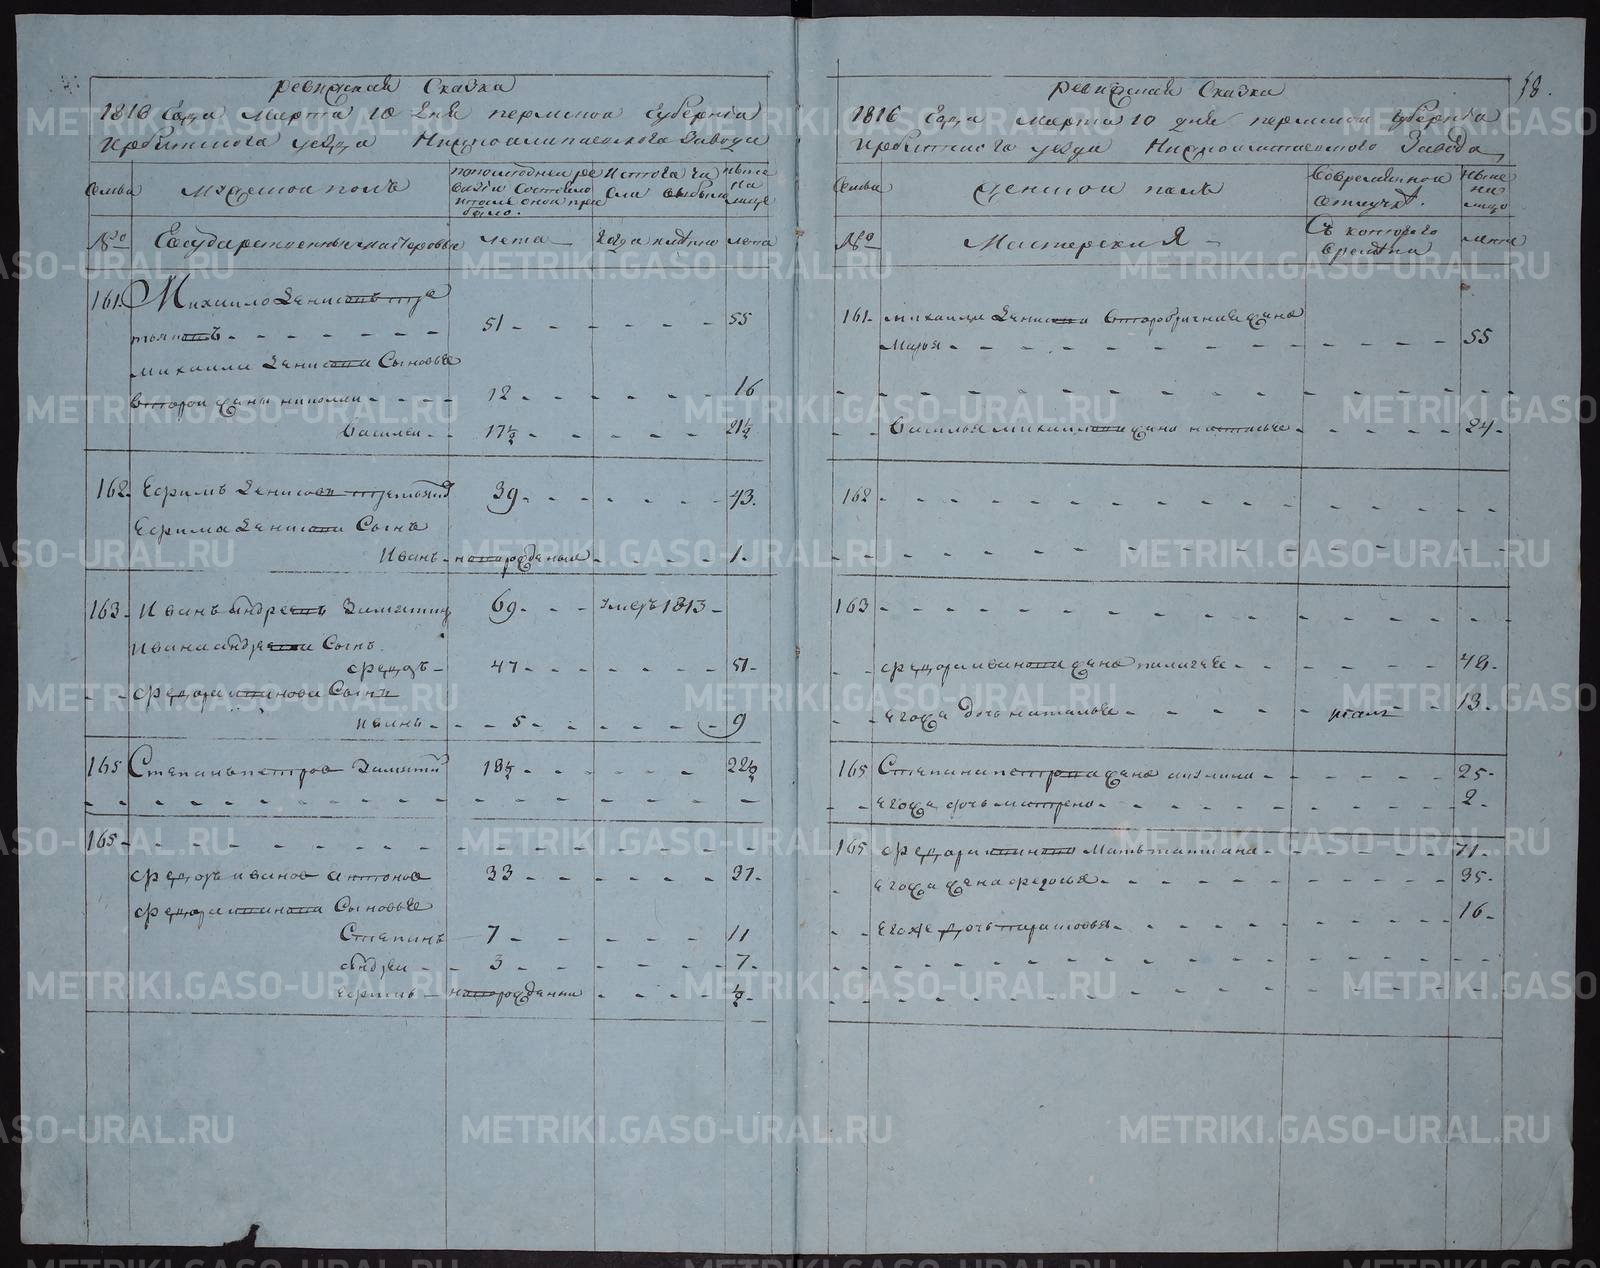 ревизская Сказка
1816 Года Марта 10 дня пермской губернiи
Ирбитского уезда Нижноалапаевского Завода
Семьи
мужеской полъ
по последней ревизiи состояло
лета
ныне на лицо
№
Государственныя мастеровыя
лета
года
лета
161.
Михаило Денисовъ
51
55
михаила Денисова Сыновье
второй жены николай
12
16
Василеи
17½
21½
162.
Ефимъ Денисовъ
39
43.
Ефима Денисова Сынъ
Иванъ
новорожденыи
1.
163
Иванъ андреевъ Замятин
69
умеръ 1813
Ивана андреева Сынъ
федоръ
47
51
федора иванова Сынъ
иванъ
5
9
165
Степанъ петров Замятин
18½
22½
165
федоръ иванов антонов
33
37.
федора иванова Сыновье
Степанъ
7
11
андреи
3
7.
ефимъ
новорожденни
½
58.
ревизская Сказка
1816 Года Марта 10 дня пермской губернiи
Ирбитского уезда Нижноалапаевского Завода
Семьи
женской полъ
Во временной отлучке.
ныне на лицо
№
Мастерския
Съ которого времѣни
лета
161.
михаила Денисова второбрачная жена
Марья
55
Василья михаилова жена настасья
24
162
163
федора иванова жена пилагее
48.
Его жа дочь наталье
13.
165
Степана петрова жена акулина
25
его жа дочь матрена
2.
165
федора иванова Мать татиана
71.
его жа жена федосья
35.
его же дочь парасковья
16
METRIKI.GASO-URAL.RU